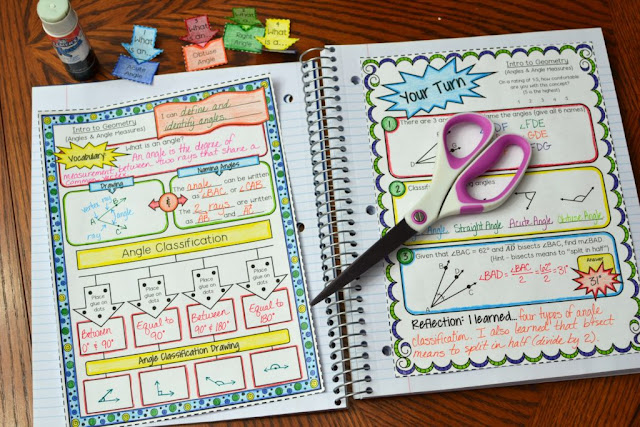 What
is an...
Acute Angle
What
is an...
Obtuse
Angle
Right
Angle
What
is a...
Intro to Geometry
(Angles & Angle Measures)
I can define and
identify angles.
Vocabulary
What is an angle?
An angle is the degree of
measurement between two rays that share a
Drawing
vertex
ray
angle
Naming Angles
The angle can be written
as ∠BAC or ∠CAB.
The 2 rays are written
as AB and AC.
Angle Classification
Place
glue on
dots
Place
glue on
dots
Place
glue on
dots
Place
glue on
dots
Between
0° & 90°
Equal to
90°
Between
90° & 180°
Equal to
180°
Angle Classification Drawing
Your Turn
Intro to Geometry
(Angles & Angle Measures)
On a rating of 1-5, how comfortable
are you with this concept?
(5 is the highest)
1 2 3 4 5
1
There are 3 an
me the angles (give all 6 names)
∠FDE
GDE
FDG
2
Classif
ng angles.
Angle
Straight Angle
Acute Angle
Obtuse Angle
3
Given that ∠BAC = 62° and AD bisects ∠BAC, find m∠BAD.
(Hint - bisects means to "split in half")
∠BAD = ∠BAC/2 = 62°/2 = 31°
Answer
31°
B
D
A
C
Reflection: I learned... four types of angle
classification. I also learned that bisect
means to split in half (divide by 2).